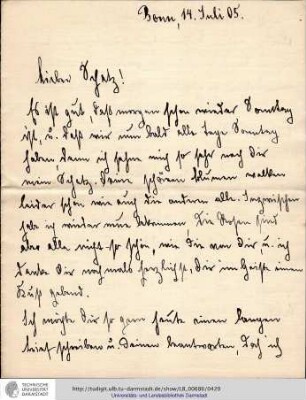 Bonn, 14. Juli 05.
Lieber Schatz!
Es ist gut, daß morgen schon wieder Sonntag
ist, u. daß wir nun bald alle Tage Sonntag
haben denn ich sehne mich so sehr nach dir
mein Schatz. Deine schönen Blumen welken
leider schon wie auch die andern alle. Inzwischen
hab ich wieder neue bekommen, die Rosen sind
aber alle nicht so schön, wie die von dir, u. ich
danke dir nochmals herzlichst, dir im Geiste einen
Kuß gebend.
Ich möchte dir so gern heute einen langen
Brief schreiben u. Deinen beantworten, doch ich
TECHNISCHE
UNIVERSITÄT
DARMSTADT
http://tudigit.ulb.tu-darmstadt.de/show/LB_00680/0429
Universitäts- und Landesbibliothek Darmstadt